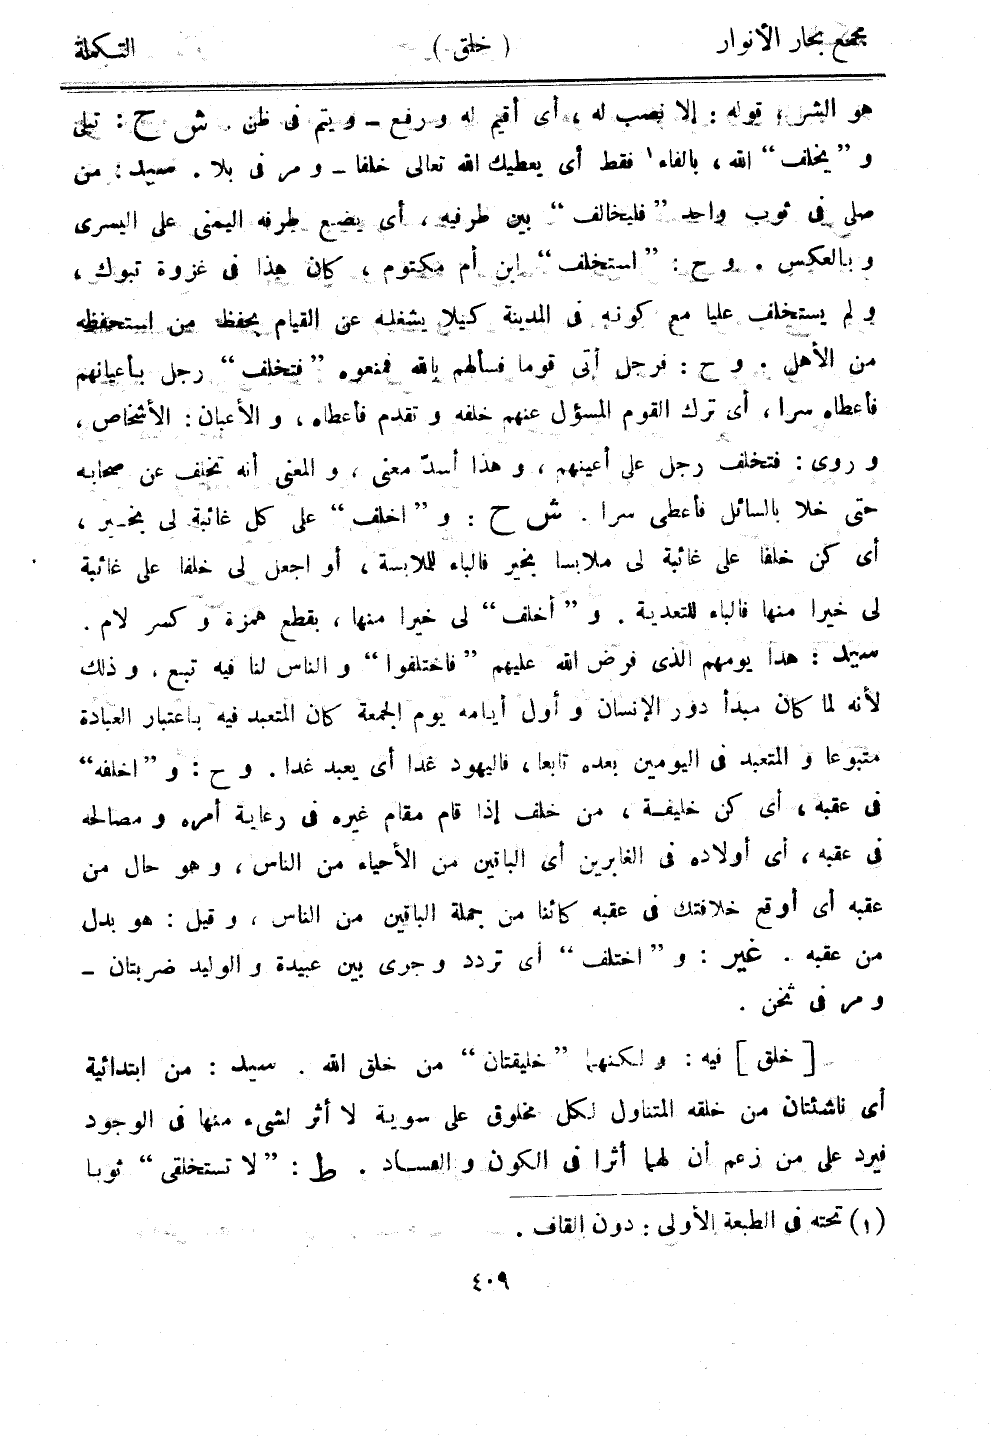 مجمع بحار الأنوار ( خلق ) التكملة
هو الشر ؛ قوله : إلا نصب له ، أى أقيم له و رفع ــ و يتم فى ظن . ش ح : تبلى
و ”يخلف“ الله ، بالفاء١ فقط أى يعطيك الله تعالى خلفا ــ و مر فى بلا . سيد : من
صلى فى ثوب واحد ”فليخالف“ بين طرفيه ، أى يضع طرفه اليمنى على اليسرى
و بالعكس . و ح : ”استخلف“ ابن أم مكتوم ، كان هذا فى غزوة تبوك ،
و لم يستخلف عليا مع كونه فى المدينة كيلا يشغله عن القيام بحفظ من استحفظه
من الأهل . و ح : فرجل أتى قوما فسألهم بالله فمنعوه ”فتخلف“ رجل بأعيانهم
فأعطاه سرا ، أى ترك القوم المسؤل عنهم خلفه و تقدم فأعطاه ، و الأعيان : الأشخاص ،
و روى : فتخلف رجل على أعينهم ، و هذا أسدّ معنى ، و المعنى أنه تخلف عن صحابه
حتى خلا بالسائل فأعطى سرا . ش ح : و ”اخلف“ على كل غائبة لى بخير ،
أى كن خلفا على غائبة لى ملابسا بخير فالباء للملابسة ، أو اجعل لى خلفا على غائبة
لى خيرا منها فالباء للتعدية . و ”أخلف“ لى خيرا منها ، بقطع همزة و كسر لام .
سيد : هذا يومهم الذى فرض الله عليهم ”فاختلفوا“ و الناس لنا فيه تبع ، و ذلك
لأنه لما كان مبدأ دور الإنسان و أول أيامه يوم الجمعة كان المتعبد فيه باعتبار العبادة
متبوعا و المتعبد فى اليومين بعده تابعا ، فاليهود غدا أى يعبد غدا . و ح : و ”اخلفه“
فى عقبه ، أى كن خليفة ، من خلف إذا قام مقام غيره فى رعاية أمره و مصالحه
فى عقبه ، أى أولاده فى الغابرين أى الباقين من الأحياء من الناس ، و هو حال من
عقبه أى أوقع خلافتك فى عقبه كائنا من جملة الباقين من الناس ، و قيل : هو بدل
من عقبه . غير : و ”اختلف“ أى تردد و جرى بين عبيدة و الوليد ضربتان ــ
و مر فى ثخن .
[ خلق ] فيه : و لكنهما ”خليقتان“ من خلق الله . سيد : من ابتدائية
أى ناشئتان من خلقه المتناول لكل مخلوق على سوية لا أثر لشىء منها فى الوجود
فيرد على من زعم أن لهما أثرا فى الكون و الفساد . ط : ”لا تستخلقى“ ثوبا
(١) تحته فى الطبعة الأولى : دون القاف .
٤٠٩